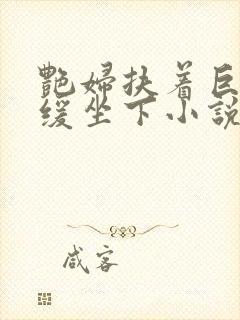 艷婦扶着巨
缓坐下小説
咸客